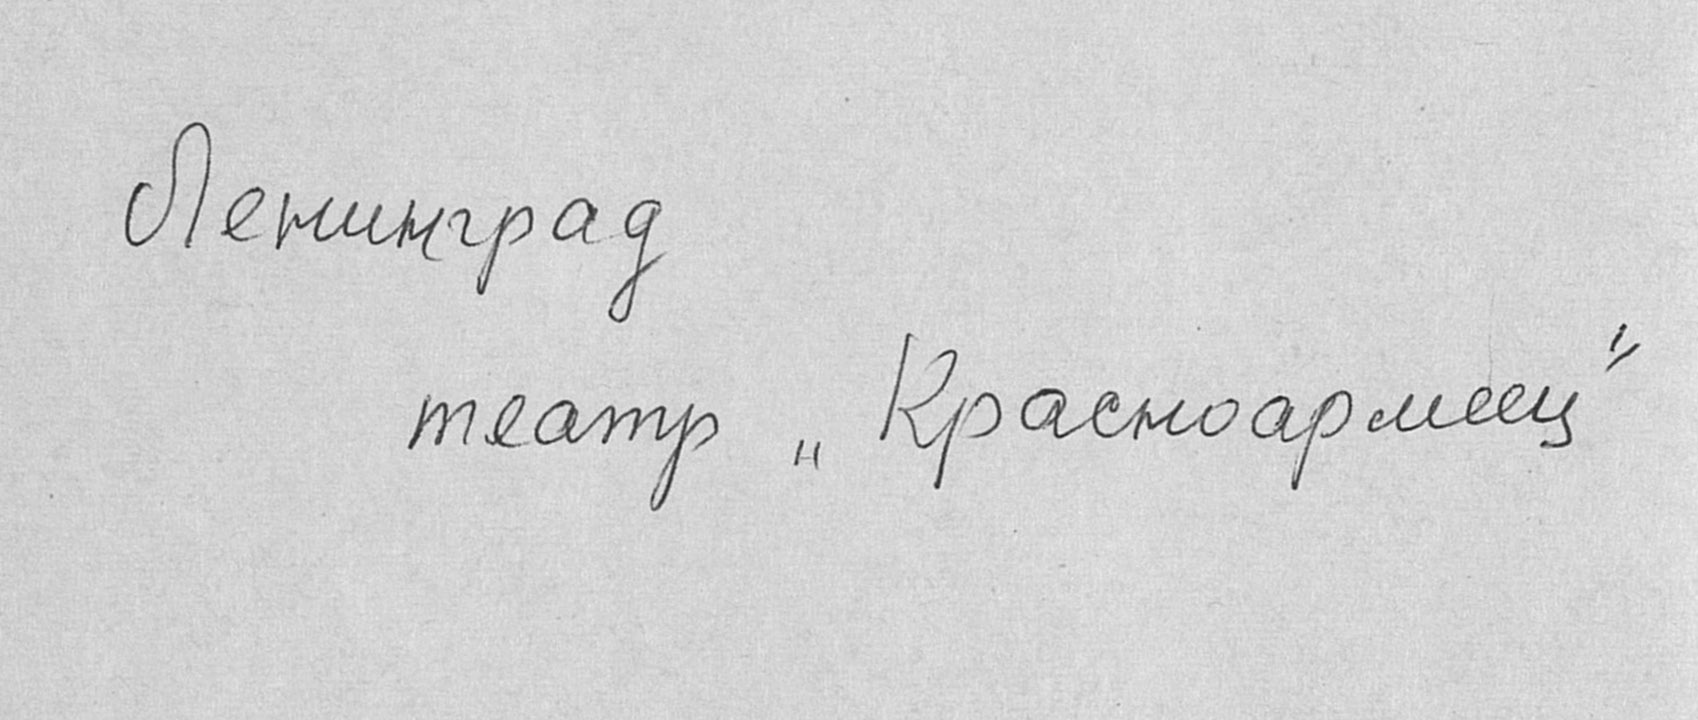 Ленинград
театр „Красноармеец"